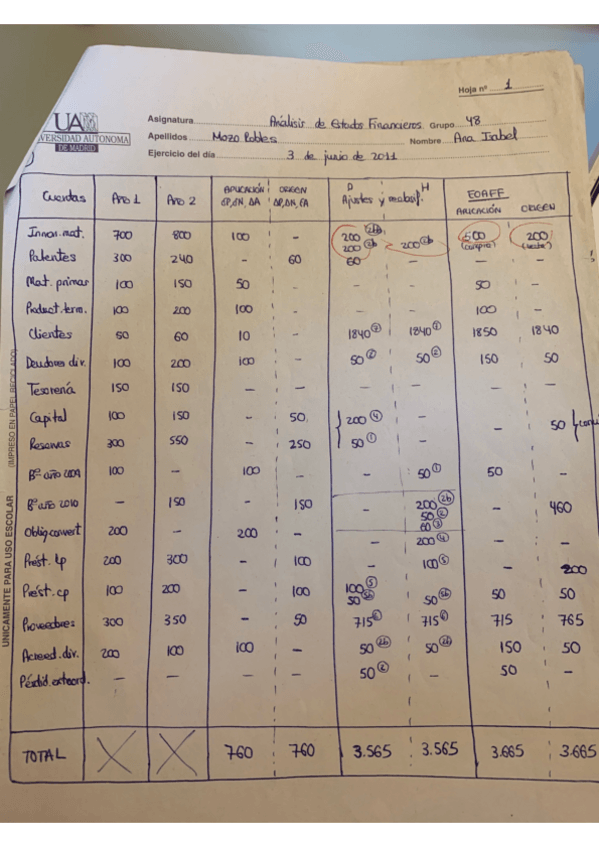 Hoja nº 1
UA
UNIVERSIDAD AUTONOMA
DE MADRID
Asignatura Análisis de Estados Financieros Grupo 48
Apellidos Mozo Robles Nombre Ana Isabel
Ejercicio del día 3 de junio de 2011
Cuentas Año 1 Año 2 APLICACIÓN ORIGEN D Ajustes y reclasif. H EOAFF
ΔP, ΔN, EA APLICACIÓN ORIGEN
Inmov. mat. 700 800 100 - 200 (2b) 500 200
200 (2b) 200 (2b) (compra) (venta)
Patentes 300 240 - 60 60 - - -
Mat. primas 100 150 50 - - - 50 -
Product. term. 100 200 100 - - - 100 -
Clientes 50 60 10 - 1840 1840 1850 1840
Deudores div. 100 200 100 - 50 50 150 50
Tesorería 150 150 - - - - - -
Capital 100 150 - 50 200 (4) - - 50
Reservas 300 550 - 250 50 (1)
Bº año 100 - 100 - - 50 (1) 50 -
Bº año 2010 - 150 - 150 200 (2b) - 460
50
60 (3)
Oblig convert 200 - 200 - - 200 (4)
Prést. lp 200 300 - 100 - 100 (5) - 200
Prést. cp 100 200 - 100 100 (5)
50 (5b) 50 (5b) 50 50
Proveedores 300 350 - 50 715 715 715 765
Acreed. div. 200 100 100 - 50 (2b) 50 (2b) 150 50
Pérdid. extraord. - - - - 50 - 50 -
TOTAL X X 760 760 3.565 3.565 3.665 3.665
UNICAMENTE PARA USO ESCOLAR (IMPRESO EN PAPEL RECICLADO)